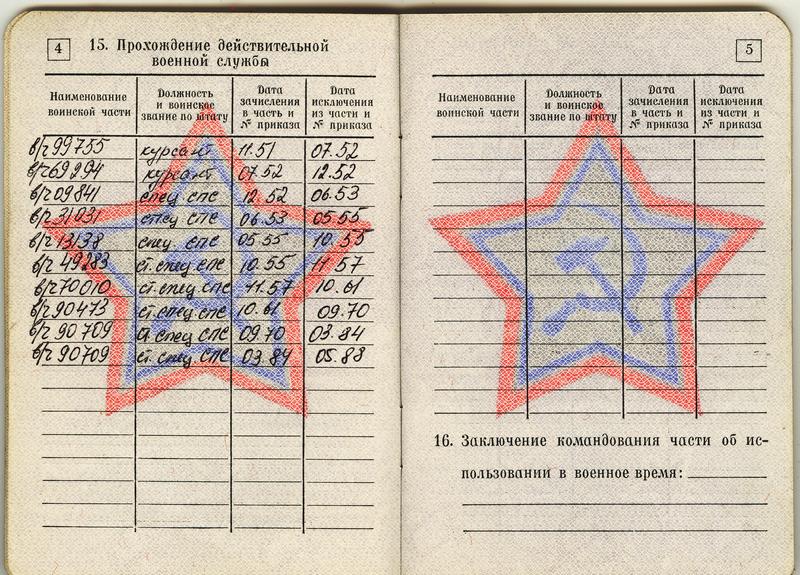 4
15. Прохождение действительной
военной службы
Наименование
воинской части
Должность
и воинское
звание по штату
Дата
зачисления
в часть и
№ приказа
Дата
исключения
из части и
№ приказа
в/ч 99755 курсант 11.51 07.52
в/ч 69294 курсант 07.52 12.52
в/ч 09841 спец СПС 12.52 06.53
в/ч 31031 спец СПС 06.53 05.55
в/ч 13138 спец. СПС 05.55 10.55
в/ч 49283 ст.спец СПС 10.55 11.57
в/ч 70010 ст.спец СПС 11.57 10.61
в/ч 90473 ст.спец СПС 10.61 09.70
в/ч 90709 ст.спец СПС 09.70 03.84
в/ч 90709 ст.спец СПС 03.84 05.88
5
Наименование
воинской части
Должность
и воинское
звание по штату
Дата
зачисления
в часть и
№ приказа
Дата
исключения
из части и
№ приказа
16. Заключение командования части об ис-
пользовании в военное время: